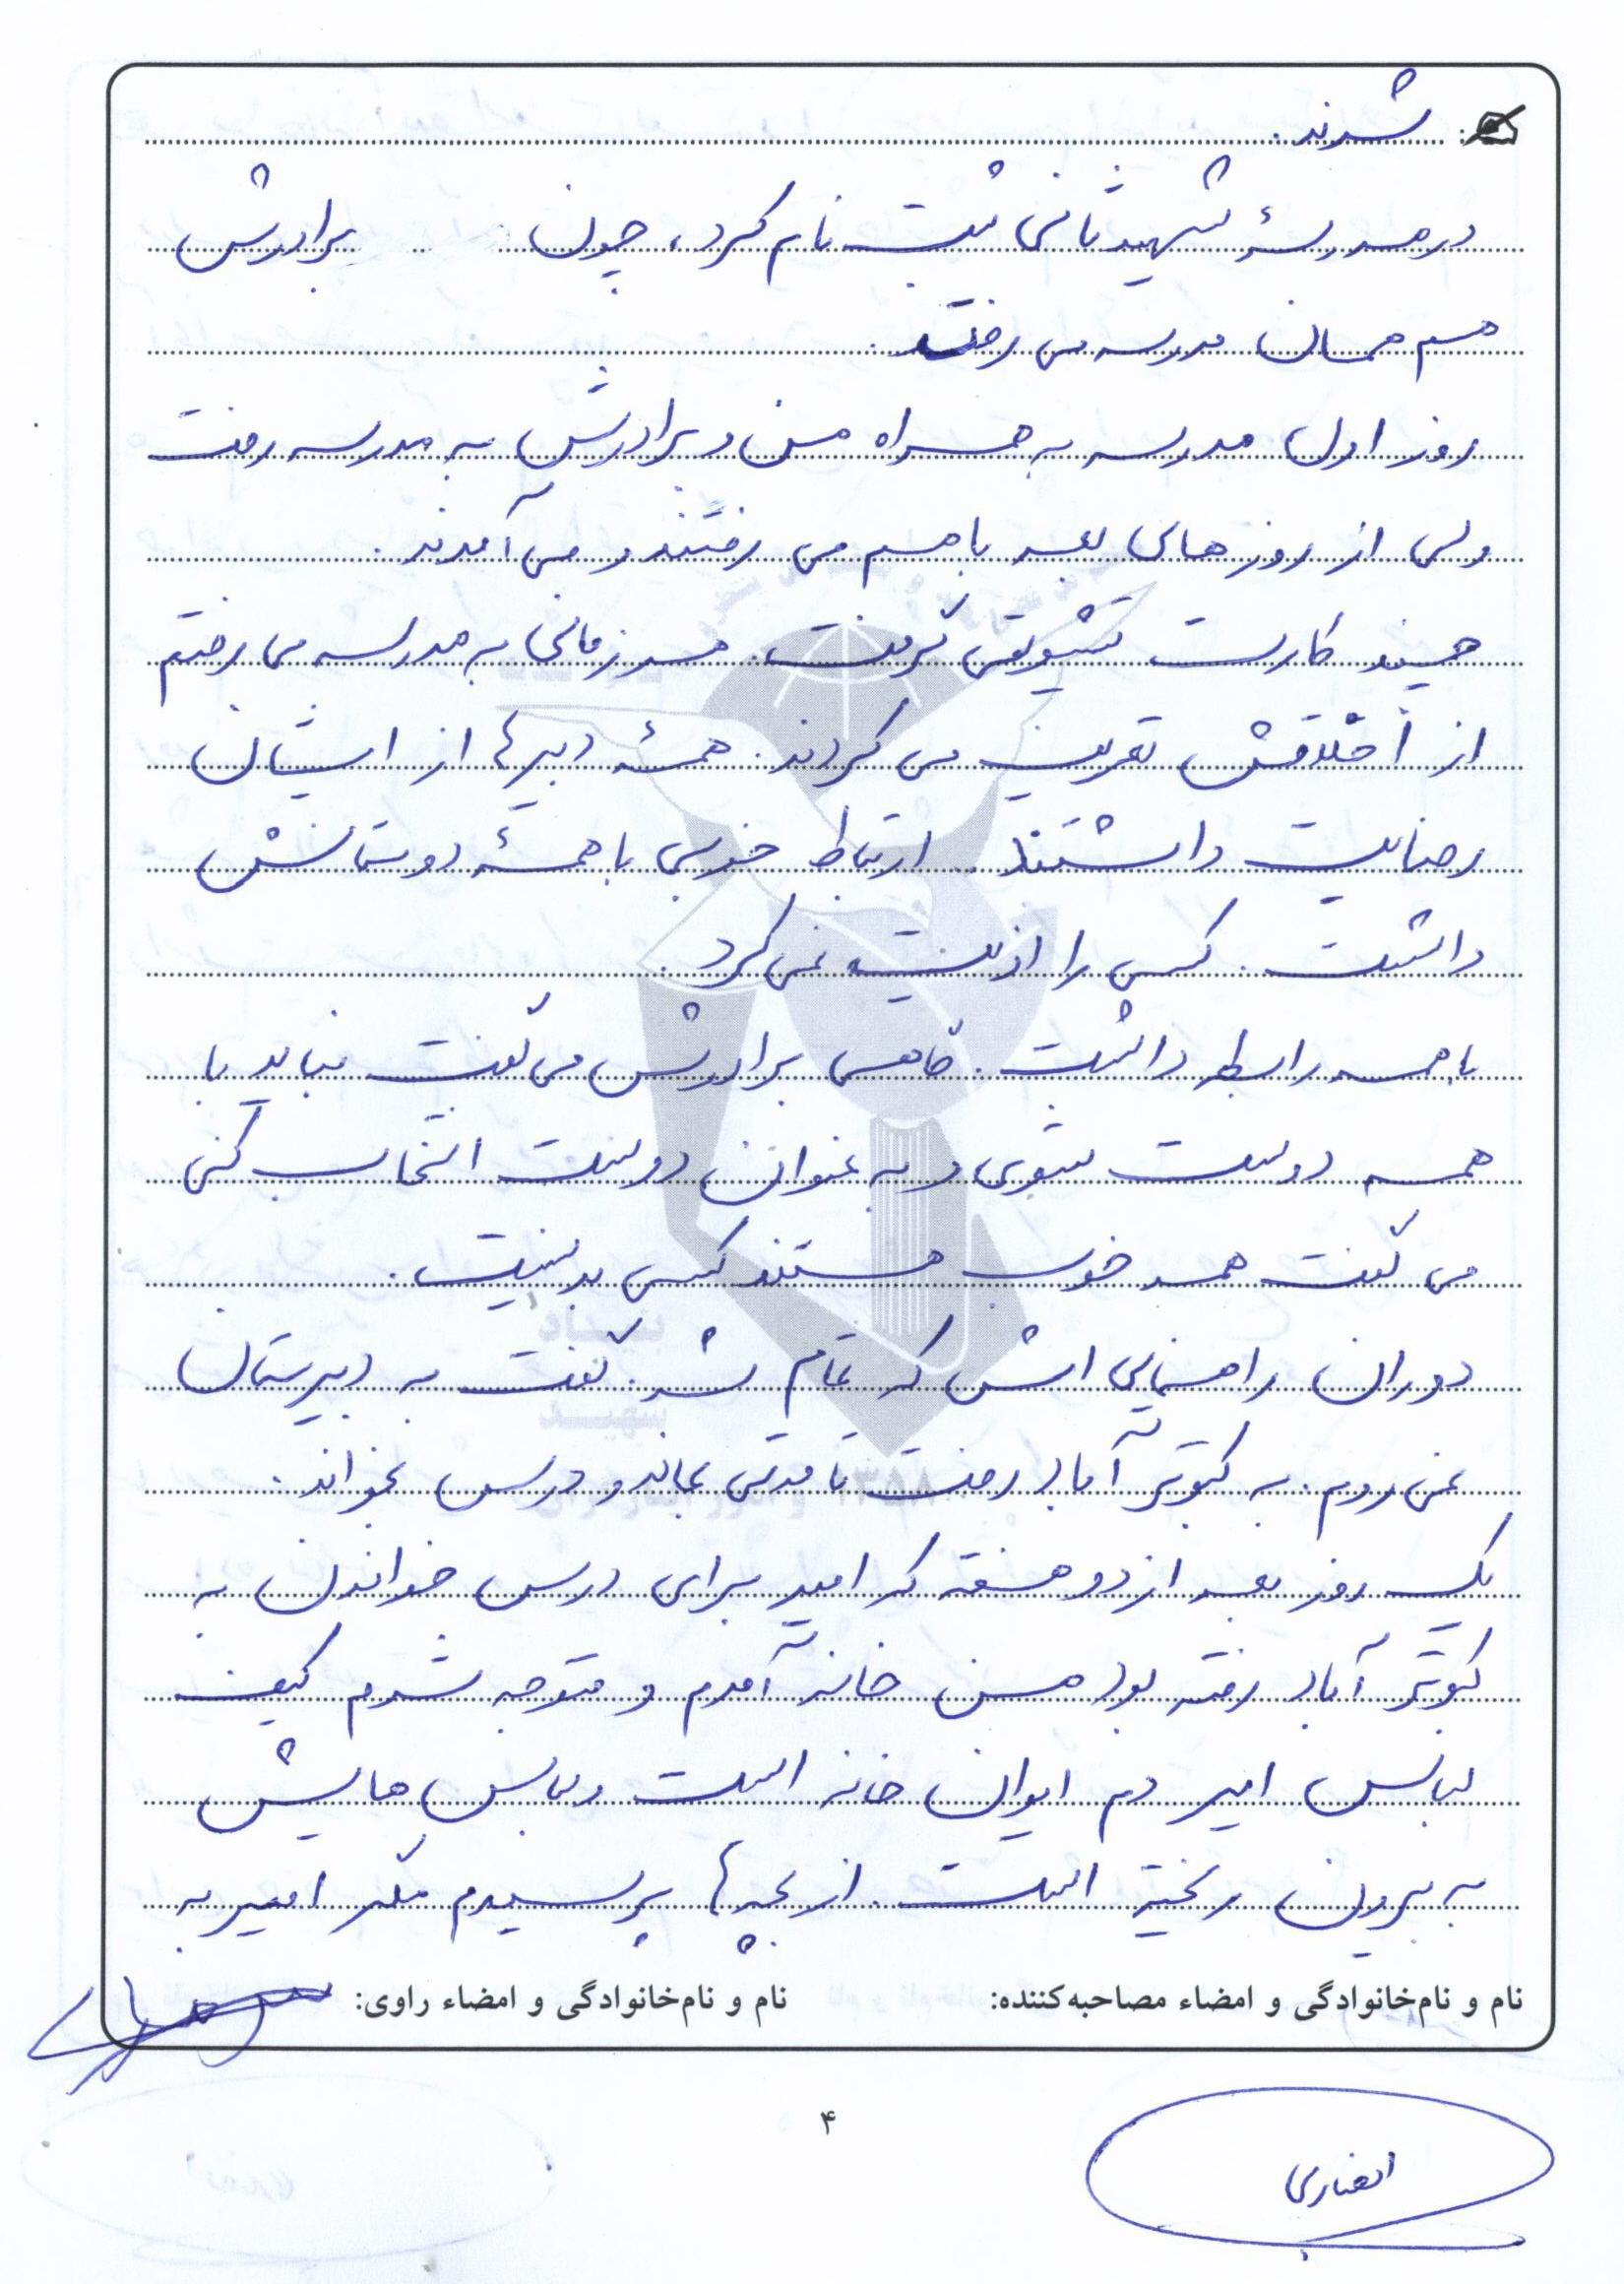 شدند.
در مدرسهٔ شهید ثانی ثبت نام کرد، چون برادرش
هم همان مدرسه می رفتند.
روز اول مدرسه به همراه من و برادرش به مدرسه رفت
ولی از روزهای بعد باهم می رفتند و می آمدند.
چند کارت تشویقی گرفت. هر زمانی به مدرسه می رفتم
از اخلاقش تعریف می کردند. همهٔ دبیرها از ایشان
رضایت داشتند. ارتباط خوبی با همهٔ دوستانش
داشت. کسی را اذیت نمی کرد.
با همه رابطه داشت. گاهی برادرش می گفت نباید با
همه دوست شوی و به عنوان دوست انتخاب کنی
می گفت همه خوب هستند کسی بد نیست.
دوران راهنمایی اش که تمام شد. گفت به دبیرستان
نمی روم. به کبوتر آباد رفت تا مدتی بماند و درس بخواند.
یک روز بعد از دو هفته که امیر برای درس خواندن به
کبوتر آباد رفته بود من خانه آمدم و متوجه شدم کیف
لباس امیر دم ایوان خانه است و لباس هایش
به بیرون ریخته است. از بچه ها پرسیدم مگر امیر به
نام و نام‌خانوادگی و امضاء مصاحبه‌کننده: نام و نام‌خانوادگی و امضاء راوی:
۴
انصاری
بنیاد
شهید
۱۳۵۸